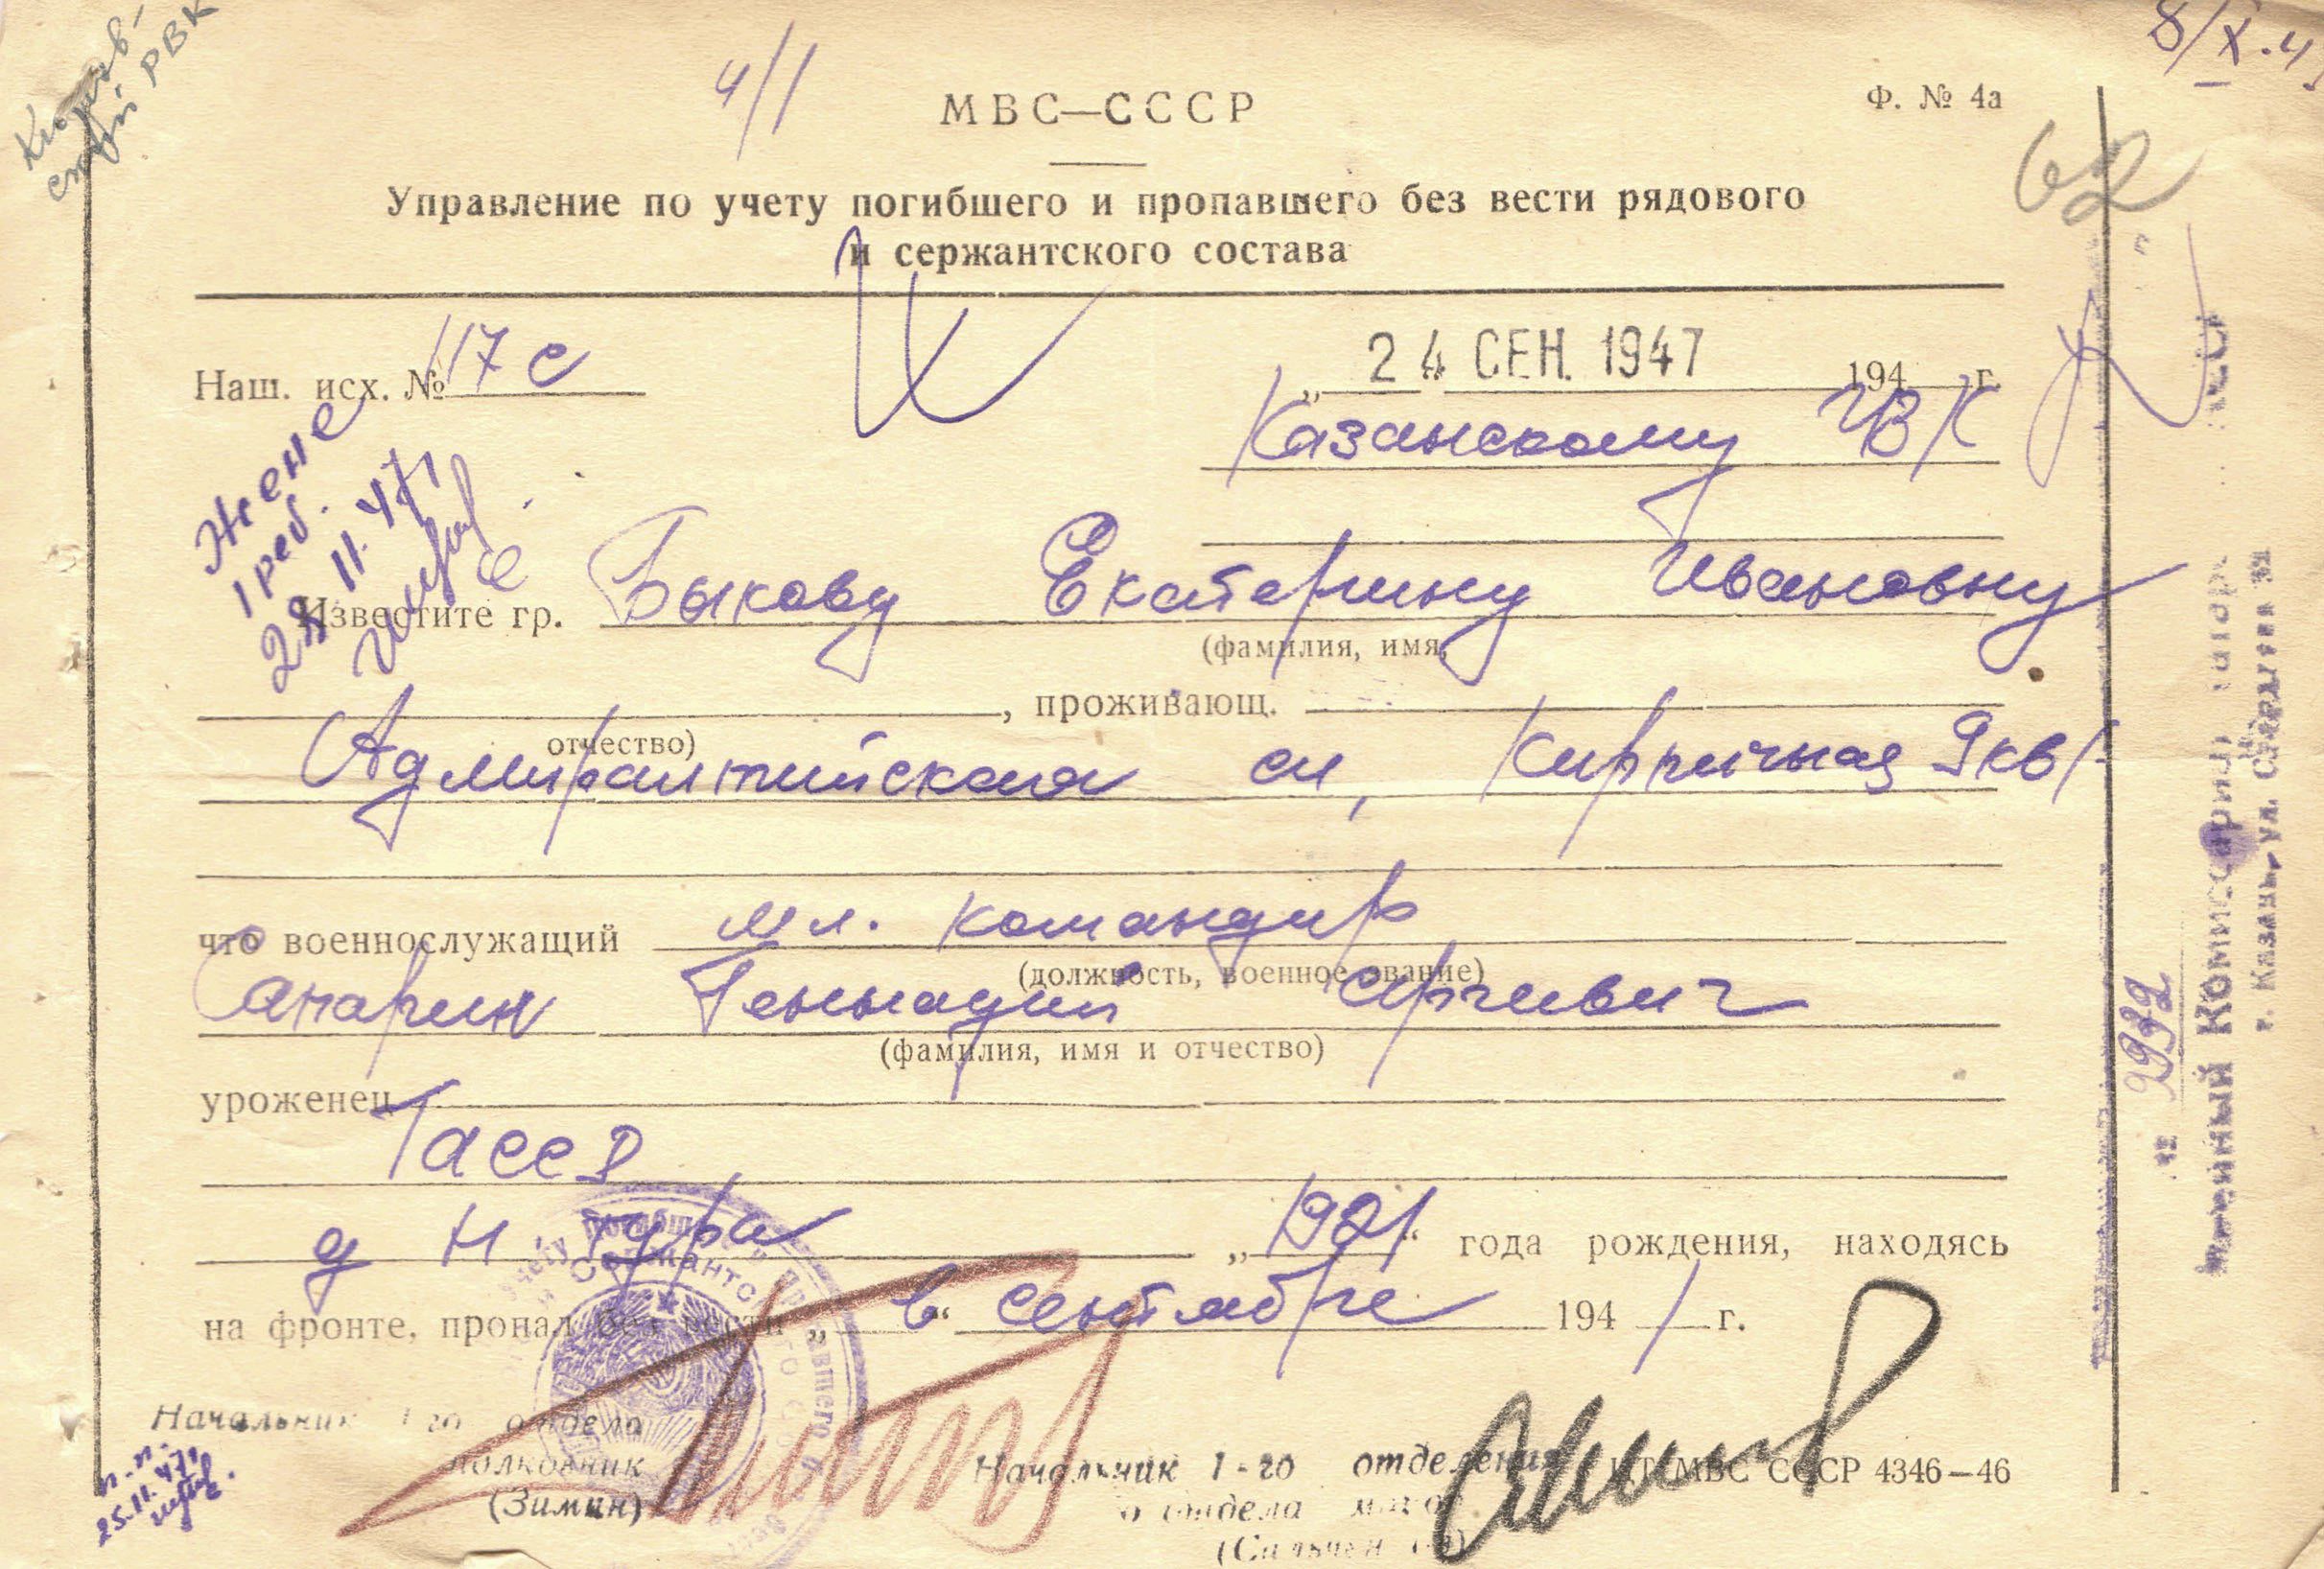 Киров-
ский РВК
4/1
МВС—СССР
Ф. № 4а
62
Управление по учету погибшего и пропавшего без вести рядового
и сержантского состава
Наш. исх. № 117 с
24 СЕН. 1947 194 г.
Казанскому ГВК
Жене
1 реб.
28.11.47
Известите гр. Быкову Екатерину Ивановну
(фамилия, имя,
, проживающ.
отчество)
Адмиралтийская сл, Кирпичная 9 кв 1
что военнослужащий мл. командир
(должность, военное звание)
Сапарин Геннадий Сергиевич
(фамилия, имя и отчество)
уроженец
ТАССР
д Н. Тура „1921“ года рождения, находясь
на фронте, пропал без вести „в“ сентябре 1941 г.
Начальник 1-го отдела
полковник
(Зимин)
Начальник 1-го отделения
отдела
ЦТ МВС СССР 4346—46
25.11.47
9392
Военный Комиссариат
г. Казань, ул.